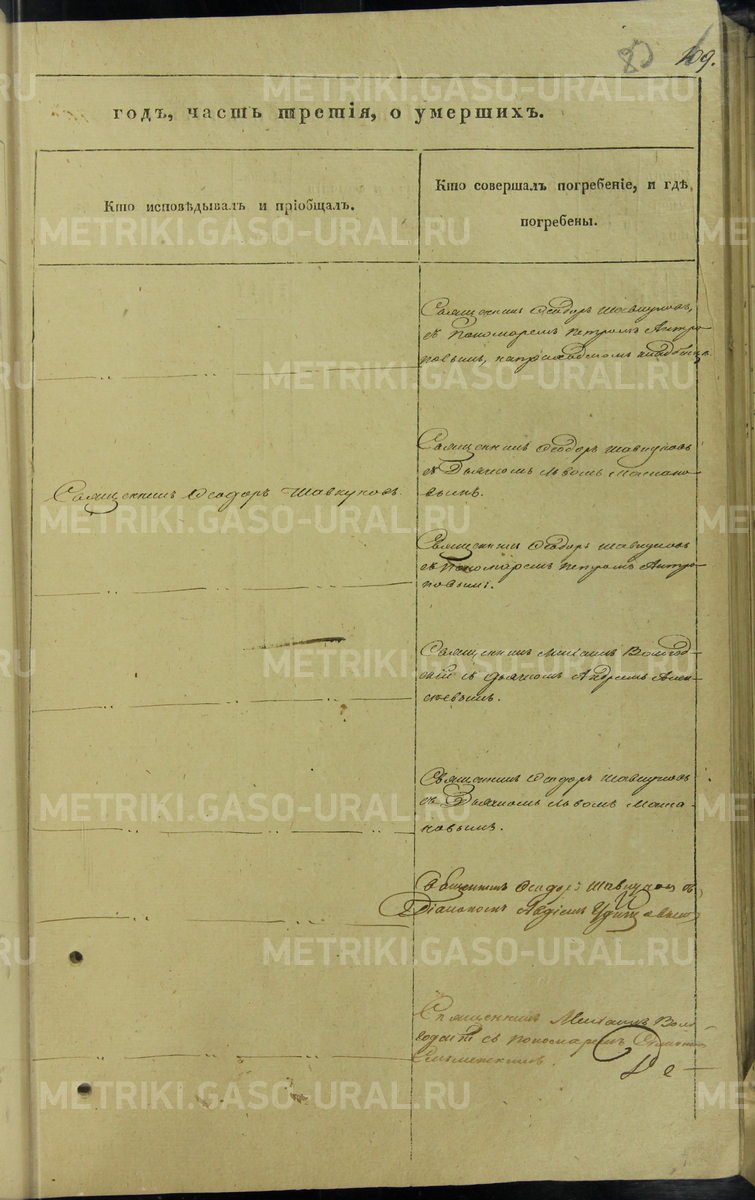 109.
годъ, часть третія, о умершихъ.
Кто исповѣдывалъ и пріобщалъ.
Кто совершалъ погребеніе, и гдѣ
погребены.
Священникъ Ѳеодоръ Шавкуновъ,
съ Пономаремъ Петромъ Антро-
повымъ, на приходскомъ кладбищѣ.
Священникъ Ѳеодоръ Шавкуновъ
съ Дьячкомъ Львомъ
Священникъ Ѳеодоръ Шавкуновъ.
Священникъ Ѳеодоръ Шавкуновъ
съ Пономаремъ Петромъ Антро-
повымъ.
Священникъ Михаилъ Вологод-
скій съ дьячкомъ Андреемъ Алек-
сѣевымъ.
Священникъ Ѳеодоръ Шавкуновъ
съ Дьячкомъ Львомъ
Священникъ Ѳеодоръ Шавкуновъ съ
Діакономъ
Священникъ Михаилъ Воло-
годскій съ пономаремъ
METRIKI.GASO-URAL.RU